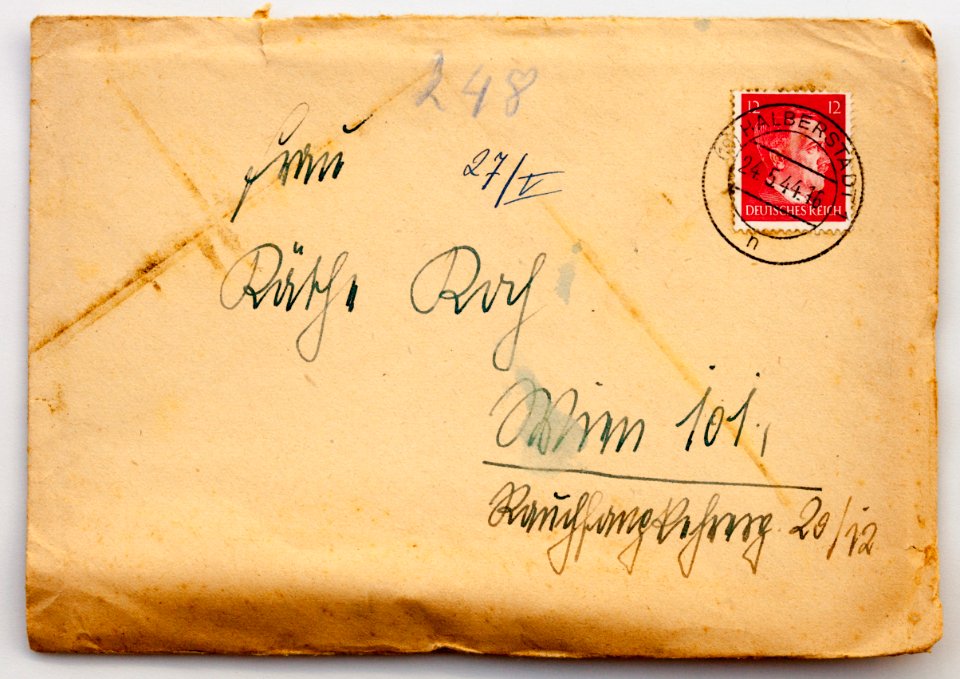 248
12 12
HALBERSTADT
24.5.44.16
n
DEUTSCHES REICH
Frau
27/V
Käthe Koch
Wien 101,
Rauchfangkehrerg. 20/12